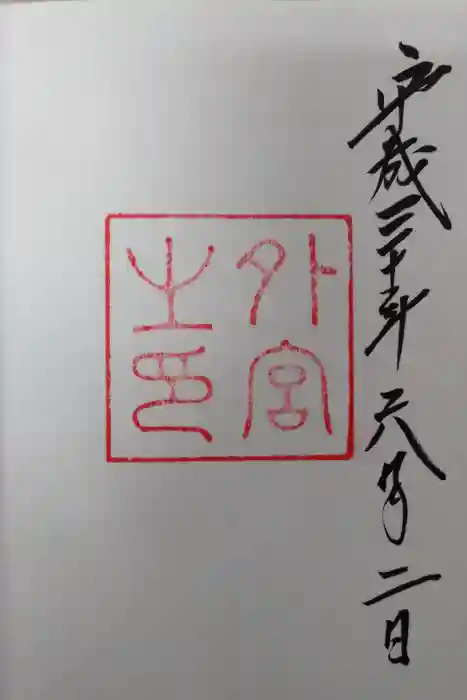 平成三十年六月二日
外宮
之印